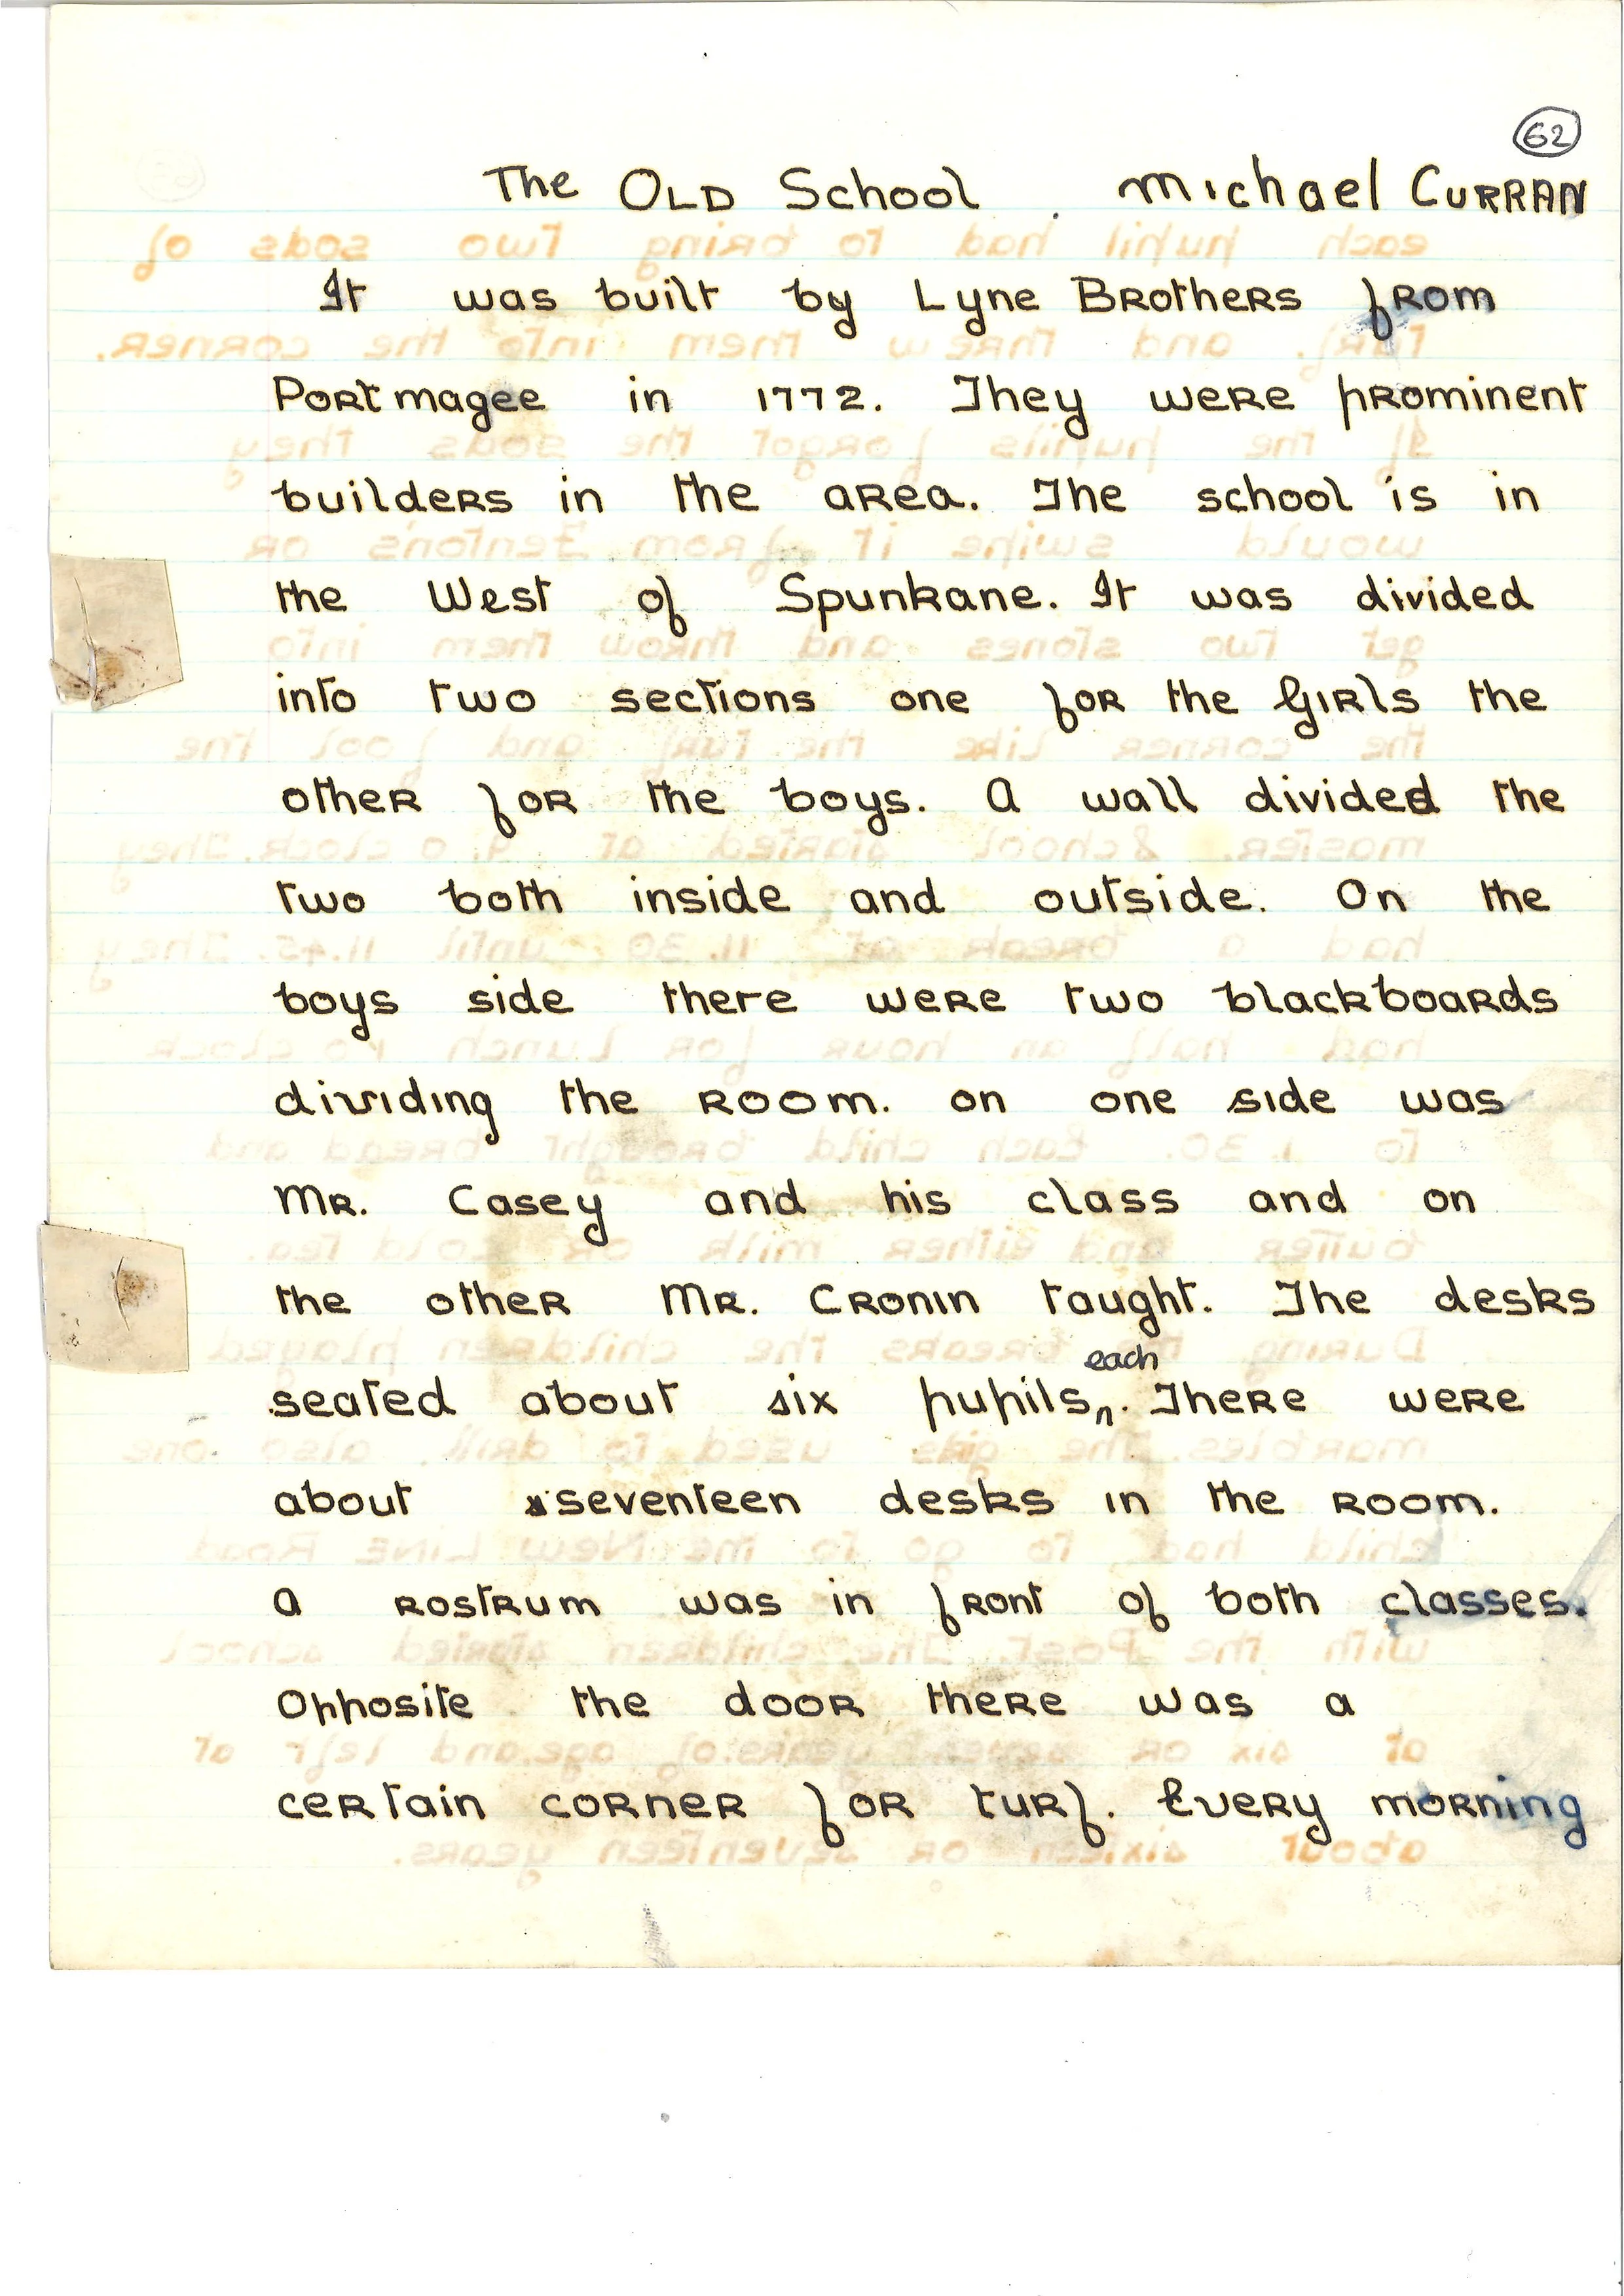 62
The Old School . Michael Curran
It was built by Lyne Brothers from
Portmagee in 1772. They were prominent
builders in the area. The school is in
the West of Spunkane. It was divided
into two sections one for the Girls the
other for the boys. A wall divided the
two both inside and outside. On the
boys side there were two blackboards
dividing the room. on one side was
Mr. Casey and his class and on
the other Mr. Cronin taught. The desks
each
seated about six pupils. There were
about seventeen desks in the room.
A rostrum was in front of both classes.
Opposite the door there was a
certain corner for turf. Every morning